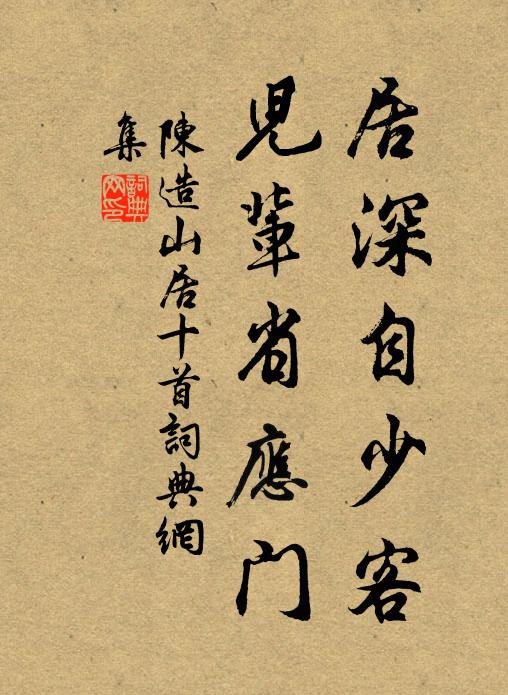 居深自少客
兒輩省應門
陳造山居十首詞典網
集
詞典网印